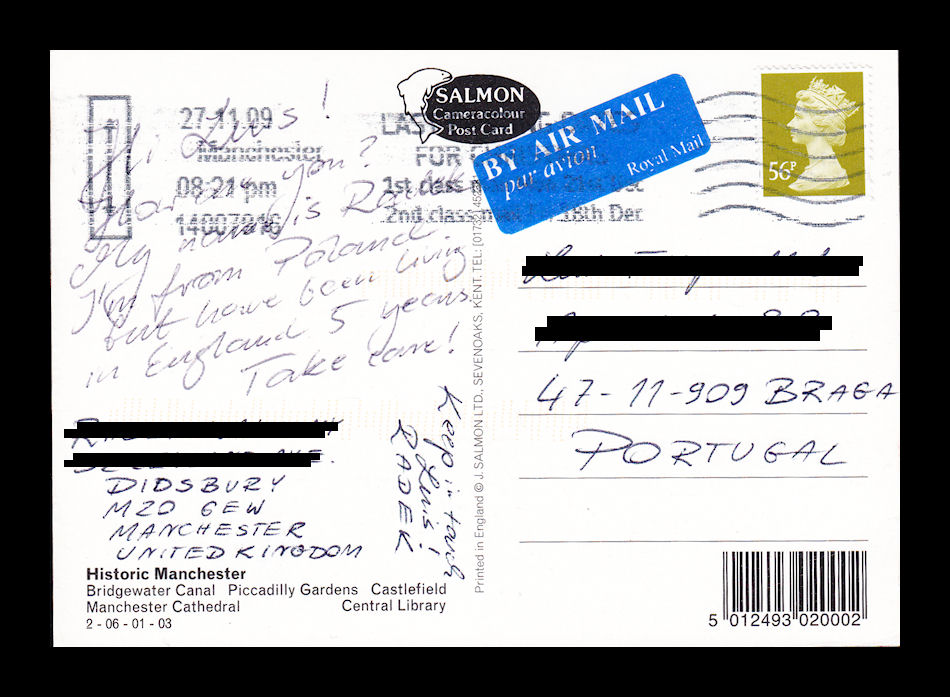 27-11-09
Manchester
08:21 pm
14007016
LAST
FOR
1st class
2nd class 18th Dec
SALMON
Cameracolour
Post Card
BY AIR MAIL
par avion
Royal Mail
56P
Hi Luis!
How are you?
My name is Radek
I'm from Poland.
but have been living
in England 5 years.
Take care!
Keep in touch
Luis!
RADEK
DIDSBURY
M20 6EW
MANCHESTER
UNITED KINGDOM
Historic Manchester
Bridgewater Canal Piccadilly Gardens Castlefield
Manchester Cathedral Central Library
2 - 06 - 01 - 03
Printed in England © J. SALMON LTD., SEVENOAKS, KENT. TEL:
47-11-909 BRAGA
PORTUGAL
5 012493 020002